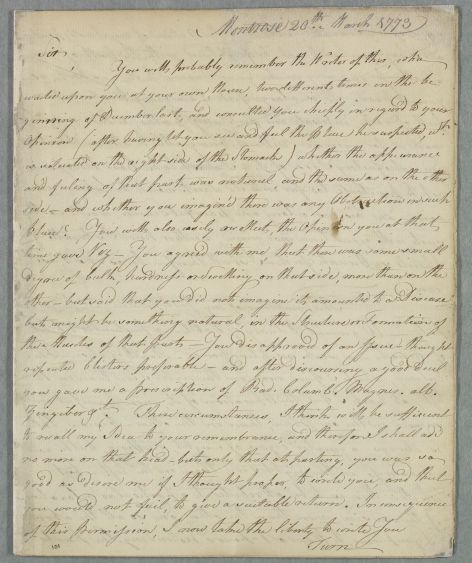 Montrose 20th. March 1773
Sir,
You will, probably remember the Writer of this, who
waited upon you at your own House, two different times in the be-
ginning of December last, and consulted you chiefly in regard to your
Opinion (after having let you see and feel the Place he suspected, wch.
is situated on the right side of the Stomach) whether the appearance
and feeling of that part was natural, and the same as on the other
side – and whether you imagin'd there was any Obstruction in such
Place? You will also easily recollect, the Opinion you at that
time gave Viz – You agreed with me, that there was some small
degree of bulk, hardness or swelling on that side, more than on the
other – but said that you did not imagine it amounted to a Disease
but might be something natural, in the Structure or Formation of
the Muscles of that Part – You disapproved of an Issue – thought
repeated blisters preferable – and after discoursing a good deal
you gave me a prescription of Rad. Columb. Magnes. alb.
Zingiber &c. These circumstances, I think will be sufficient
to recall my Idea to your remembrance, and therefore I shall add
no more on that head – but only that at parting, you was so
good as desire me if I thought proper, to write you, and that
you would not fail, to give a suitable return. In consequence
of this Permission, I now take the liberty to write You
Turn